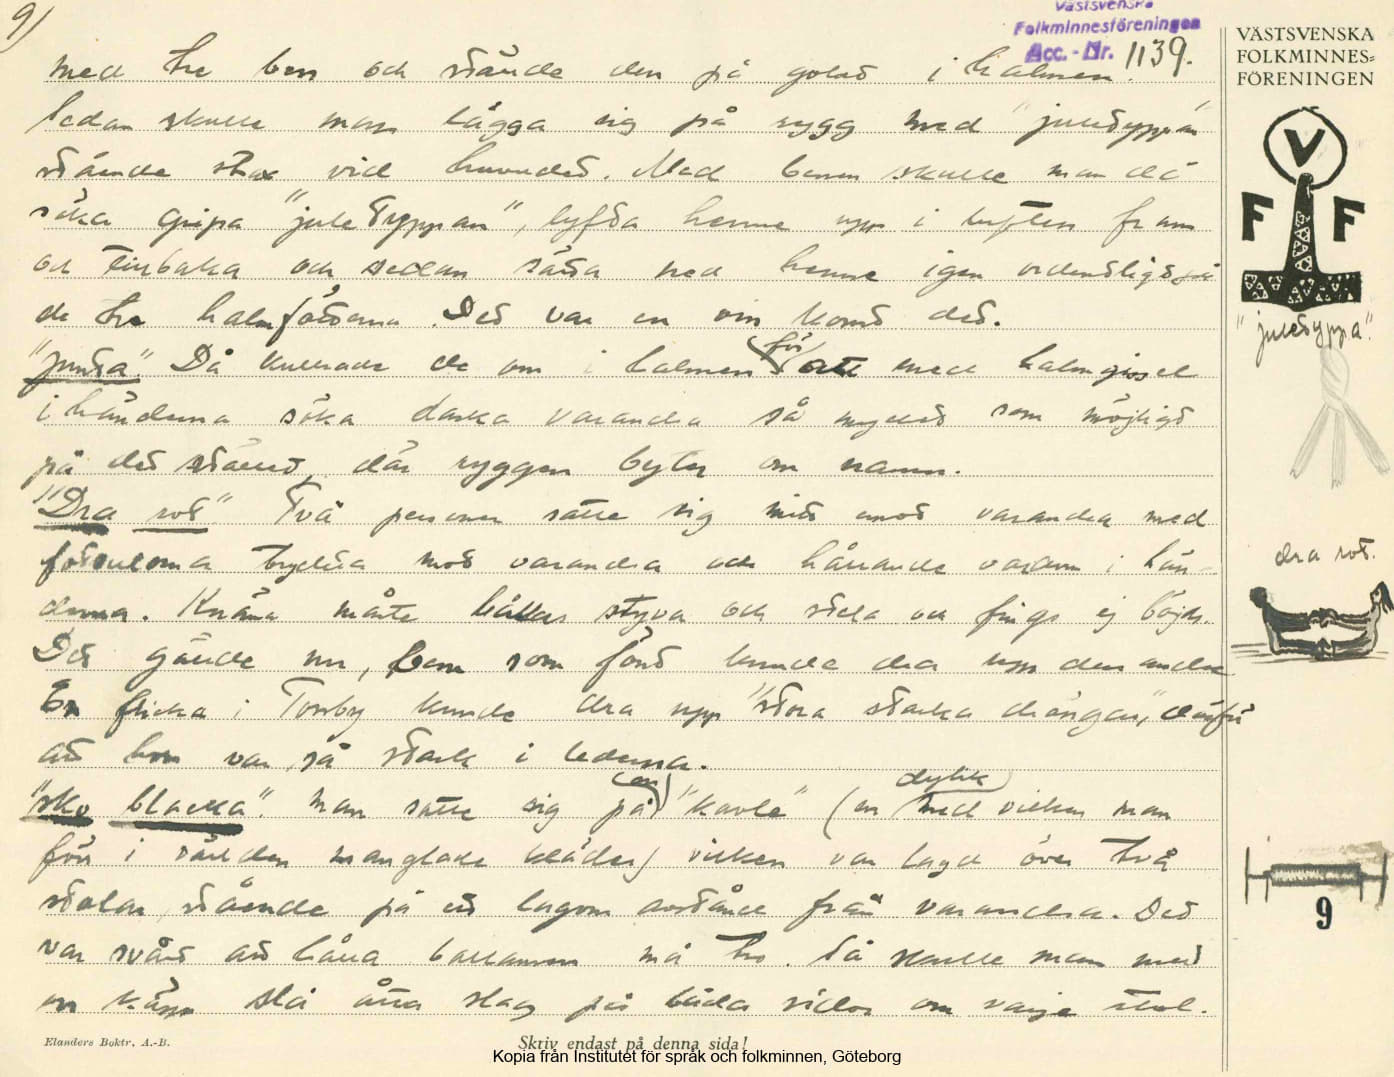 9)
Västsvenska
Folkminnesföreningen
Acc. - Nr. 1139.
VÄSTSVENSKA
FOLKMINNES-
FÖRENINGEN
V
F F
med tre ben och ställde den på golvet i halmen.
Sedan skulle man lägga sig på rygg med "juletyppan"
stående strax vid huvudet. Med benen skulle man då
söka gripa "juletyppan", lyfta henne upp i luften fram
och tillbaka och sedan sätta ned henne igen ordentligt på
de tre halmfötterna. Det var en vin konst det.
"juletyppa".
"Junta". Då kullrade de om i halmen för att med halmgissel
i händerna söka daska varandra så mycket som möjligt
på det stället, där ryggen byter om namn.
"Dra rot" Två personer satte sig mitt emot varandra med
fotsulorna tryckta mot varandra och hållande varann i hän-
derna. Knäna måste hållas styva och räta och fingo ej böjas.
dra rot.
Det gällde nu, vem som först kunde dra upp den andra
En flicka i Torsby kunde dra upp "stora starka drängar", därför
att hon var så stark i lederna.
"sko blacka". Man satte sig på en "kavle" (en dylik med vilken man
förr i världen manglade kläder) vilken var lagd över två
stolar, stående på ett lagom avstånd från varandra. Det
var svårt att hålla ballansen må tro. Så skulle man med
en käpp slå åtta slag på båda sidor om varje stol.
9
Elanders Boktr. A.-B.
Skriv endast på denna sida!
Kopia från Institutet för språk och folkminnen, Göteborg